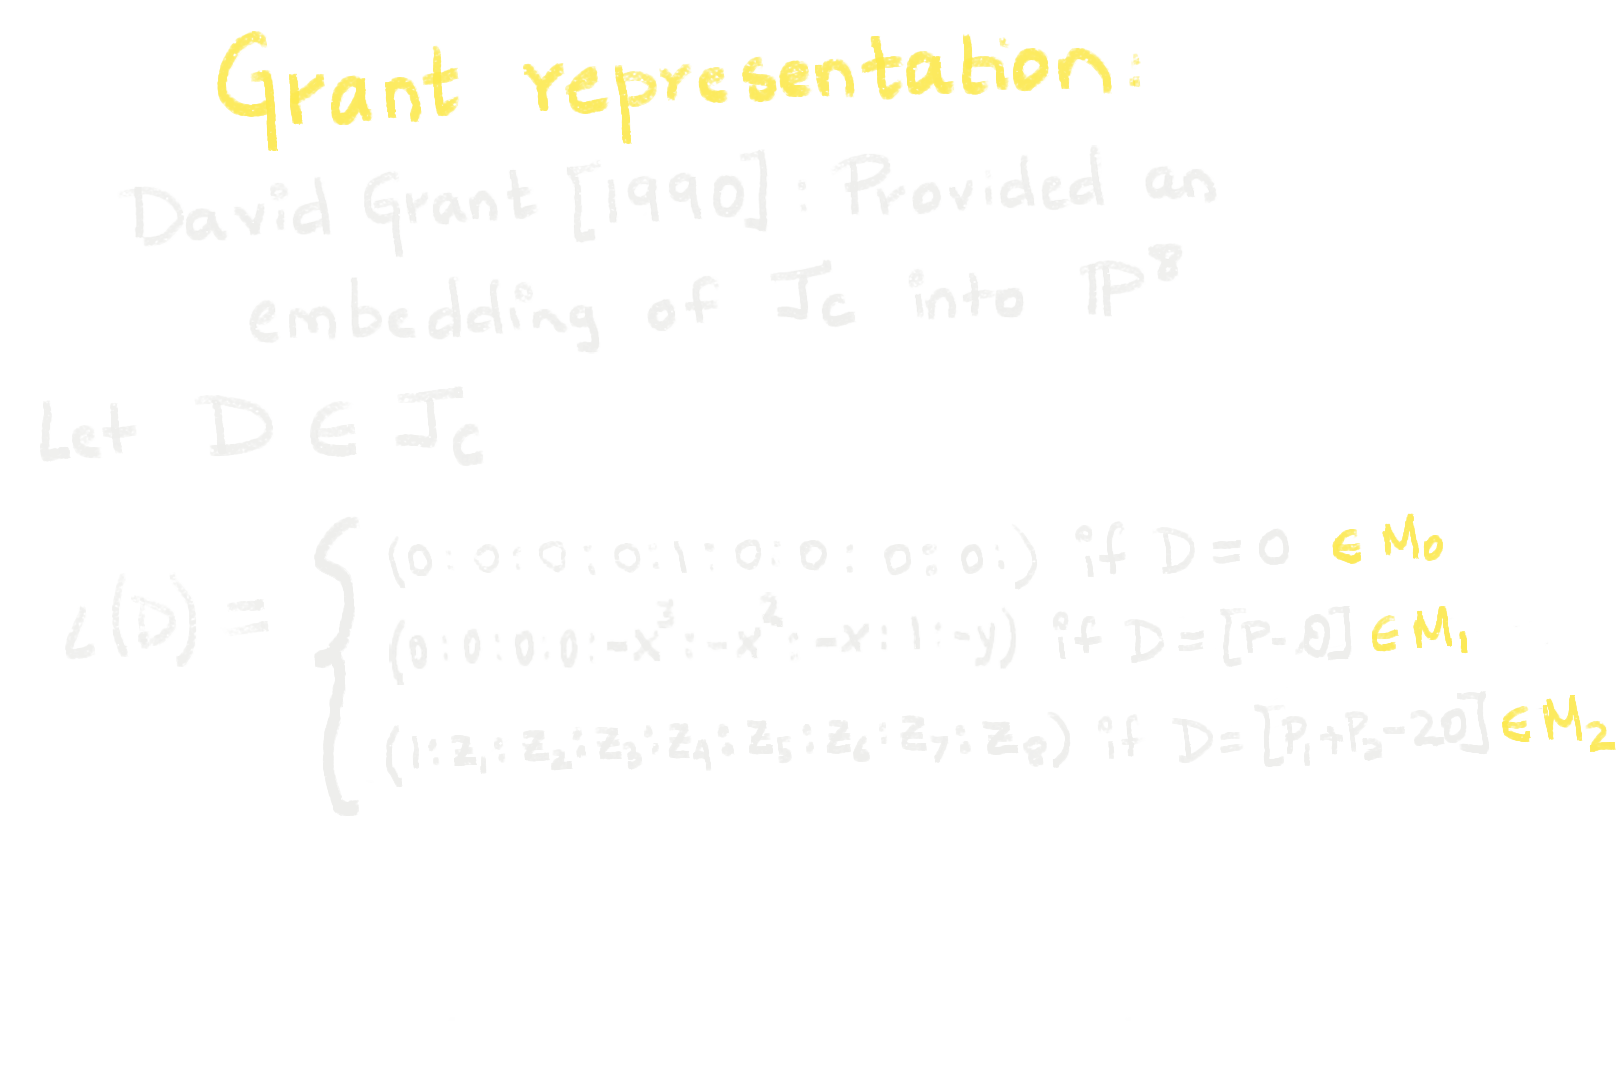 Grant representation:
David Grant [1990]: Provided an
embedding of J_C into ℙ^8
Let D ∈ J_C
L(D) = {
(0:0:0:0:1:0:0:0:0:) if D=0 ∈ M_0
(0:0:0:0:-x^3:-x^2:-x:1:-y) if D=[P-O] ∈ M_1
(1:z_1:z_2:z_3:z_4:z_5:z_6:z_7:z_8) if D=[P_1+P_2-2O] ∈ M_2